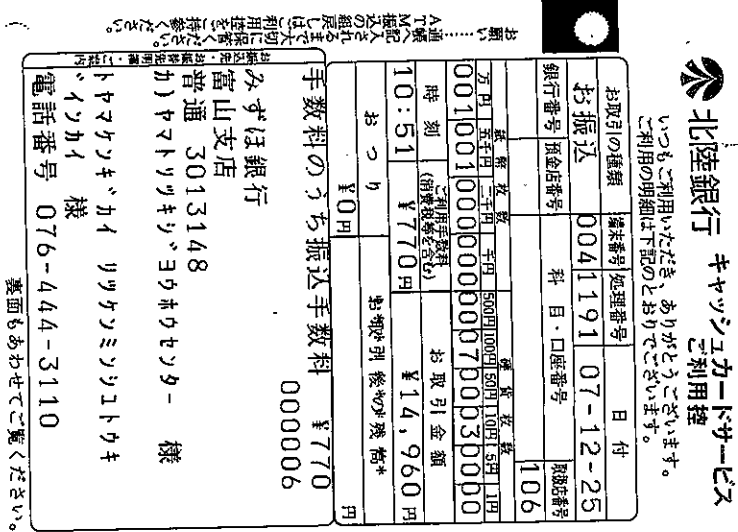 北陸銀行 キャッシュカードサービス
ご利用控
いつもご利用いただき、ありがとうございます。
ご利用の明細は下記のとおりでございます。
お取引の種類 端末番号 処理番号 日付
お振込 0041191 07-12-25
銀行番号 預金店番号 科目・口座番号 取扱店番号
106
紙幣枚数 硬貨枚数
万円 五千円 二千円 千円 500円 100円 50円 10円 5円 1円
001001000000000700030000
時刻 ご利用手数料(消費税等を含む) お取引金額
10:51 ¥770円 ¥14,960円
おつり お取引後の残高
¥0円 円
手数料のうち振込手数料 ¥770
000006
みずほ銀行
富山支店
普通 3013148
カ)ヤマトリツキシ゛ヨウホウセンター 様
トヤマケンキ゛カイ リツケンミンシユトウキ
゛インカイ 様
電話番号 076-444-3110
裏面もあわせてご覧ください。
お願い……通帳へ記入されるまで大切に保管ください。
ATM振込の組戻しはご利用控をご持参ください。